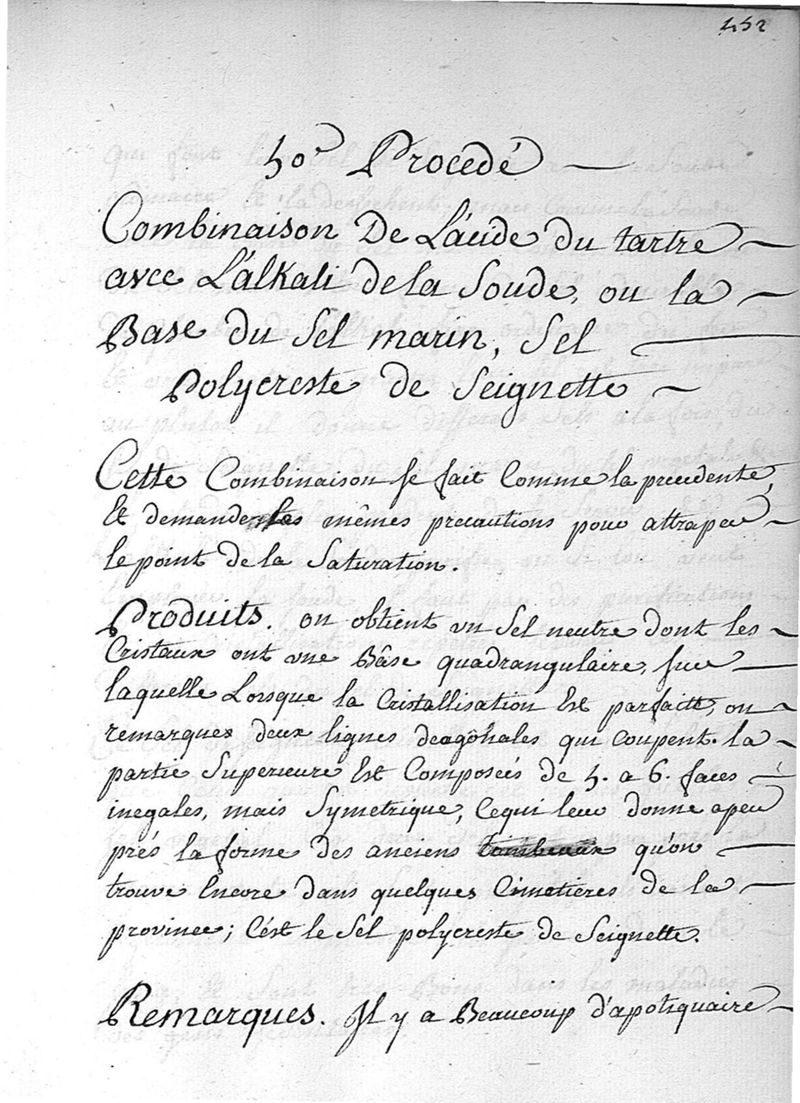 452
50e Procedé
Combinaison De L'acide du tartre
avec L'alkali de la Soude, ou la
Base du Sel marin, Sel
Polycreste de Seignette
Cette Combinaison se fait Comme la precedente,
Et demande les mêmes precautions pour attraper
le point de la Saturation.
Produits. on obtient un Sel neutre dont les
Cristaux ont une Bâse quadrangulaire, sur
laquelle Lorsque la Cristallisation Est parfaite, on
remarque deux lignes deagonales qui coupent. la
partie Superieure Est Composées de 5. a 6. faces
inegales, mais Symetrique, Cequi leur donne apeu
prés la forme des anciens tombeaux qu'on
trouve Encore dans quelques Cimetiéres de la
province; C'ést le Sel polycreste de Seignette.
Remarques. Il y a Beaucoup d'apotiquaire